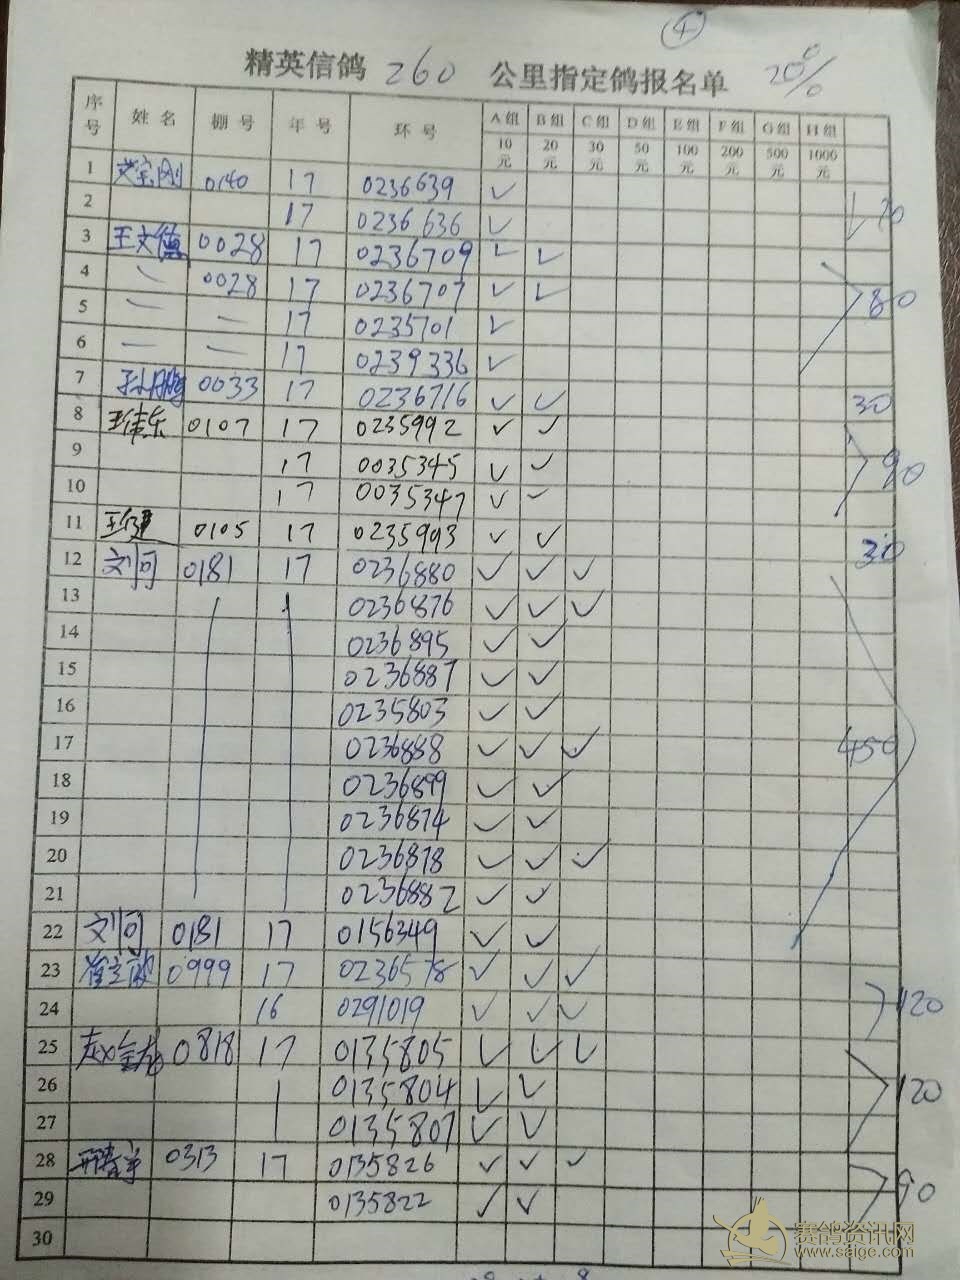 4
精英信鸽 260 公里指定鸽报名单 20%
序号 姓名 棚号 年号 环号 A组 B组 C组 D组 E组 F组 G组 H组
10元 20元 30元 50元 100元 200元 500元 1000元
1 0140 17 0236639 ✓
2 17 0236636 ✓ 20
3 王文德 0028 17 0236709 ✓ ✓
4 0028 17 0236707 ✓ ✓ 80
5 — — 17 0235701 ✓
6 — — 17 0239336 ✓
7 孙鹏 0033 17 0236716 ✓ ✓ 30
8 王伟东 0107 17 0235992 ✓ ✓
9 17 0035345 ✓ ✓ 90
10 17 0035347 ✓ ✓
11 0105 17 0235993 ✓ ✓ 30
12 0181 17 0236880 ✓ ✓ ✓
13 0236876 ✓ ✓ ✓
14 0236895 ✓ ✓
15 0236887 ✓ ✓
16 0235803 ✓ ✓
17 0236888 ✓ ✓ ✓ 450
18 0236899 ✓ ✓
19 0236874 ✓ ✓
20 0236878 ✓ ✓ ✓
21 0236882 ✓ ✓
22 0181 17 0156349 ✓ ✓
23 0999 17 0236578 ✓ ✓ ✓
24 16 0291019 ✓ ✓ ✓ 120
25 0818 17 0135805 ✓ ✓ ✓
26 0135804 ✓ ✓ 120
27 0135807 ✓ ✓
28 0313 17 0135826 ✓ ✓ ✓
29 0135822 ✓ ✓ 90
30
赛鸽资讯网
www.saige.com